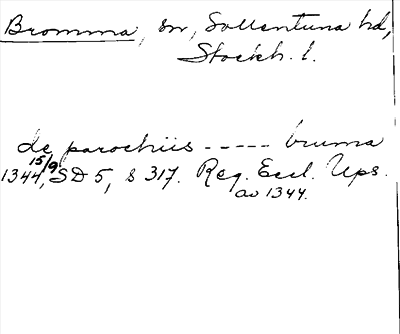 Bromma, sn, Sollentuna hd,
Stockh. l.
de parochiis ----- bruma
1344 15/9, SD 5, s 317. Reg. Eccl. Ups.
av 1344.